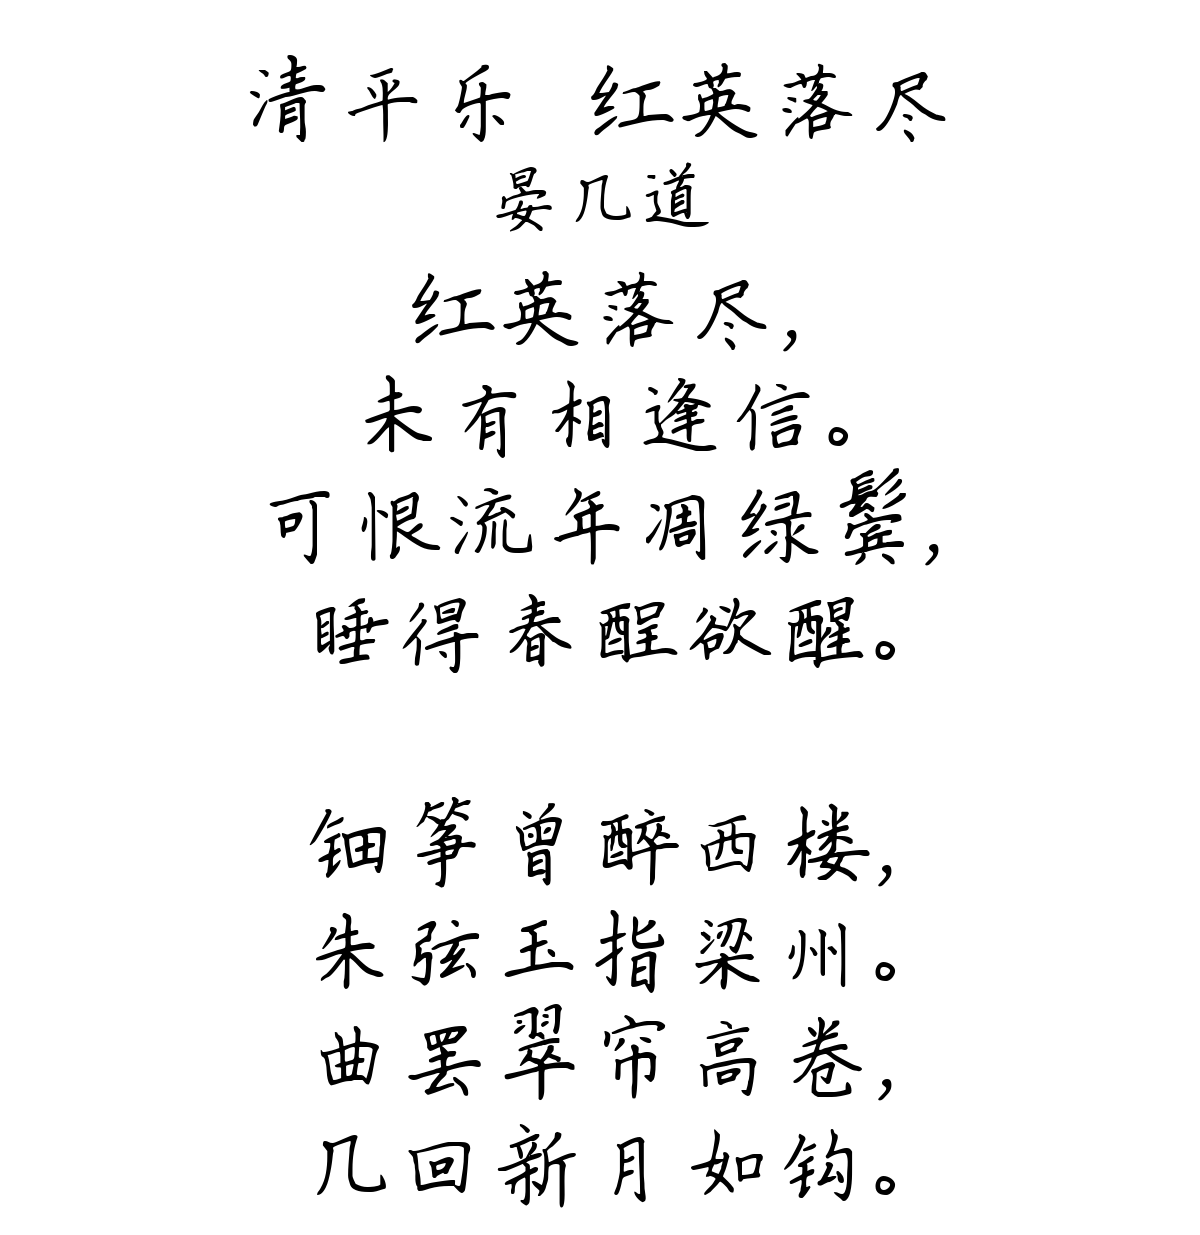 清平乐 红英落尽
晏几道
红英落尽，
未有相逢信。
可恨流年凋绿鬓，
睡得春酲欲醒。
钿筝曾醉西楼，
朱弦玉指梁州。
曲罢翠帘高卷，
几回新月如钩。